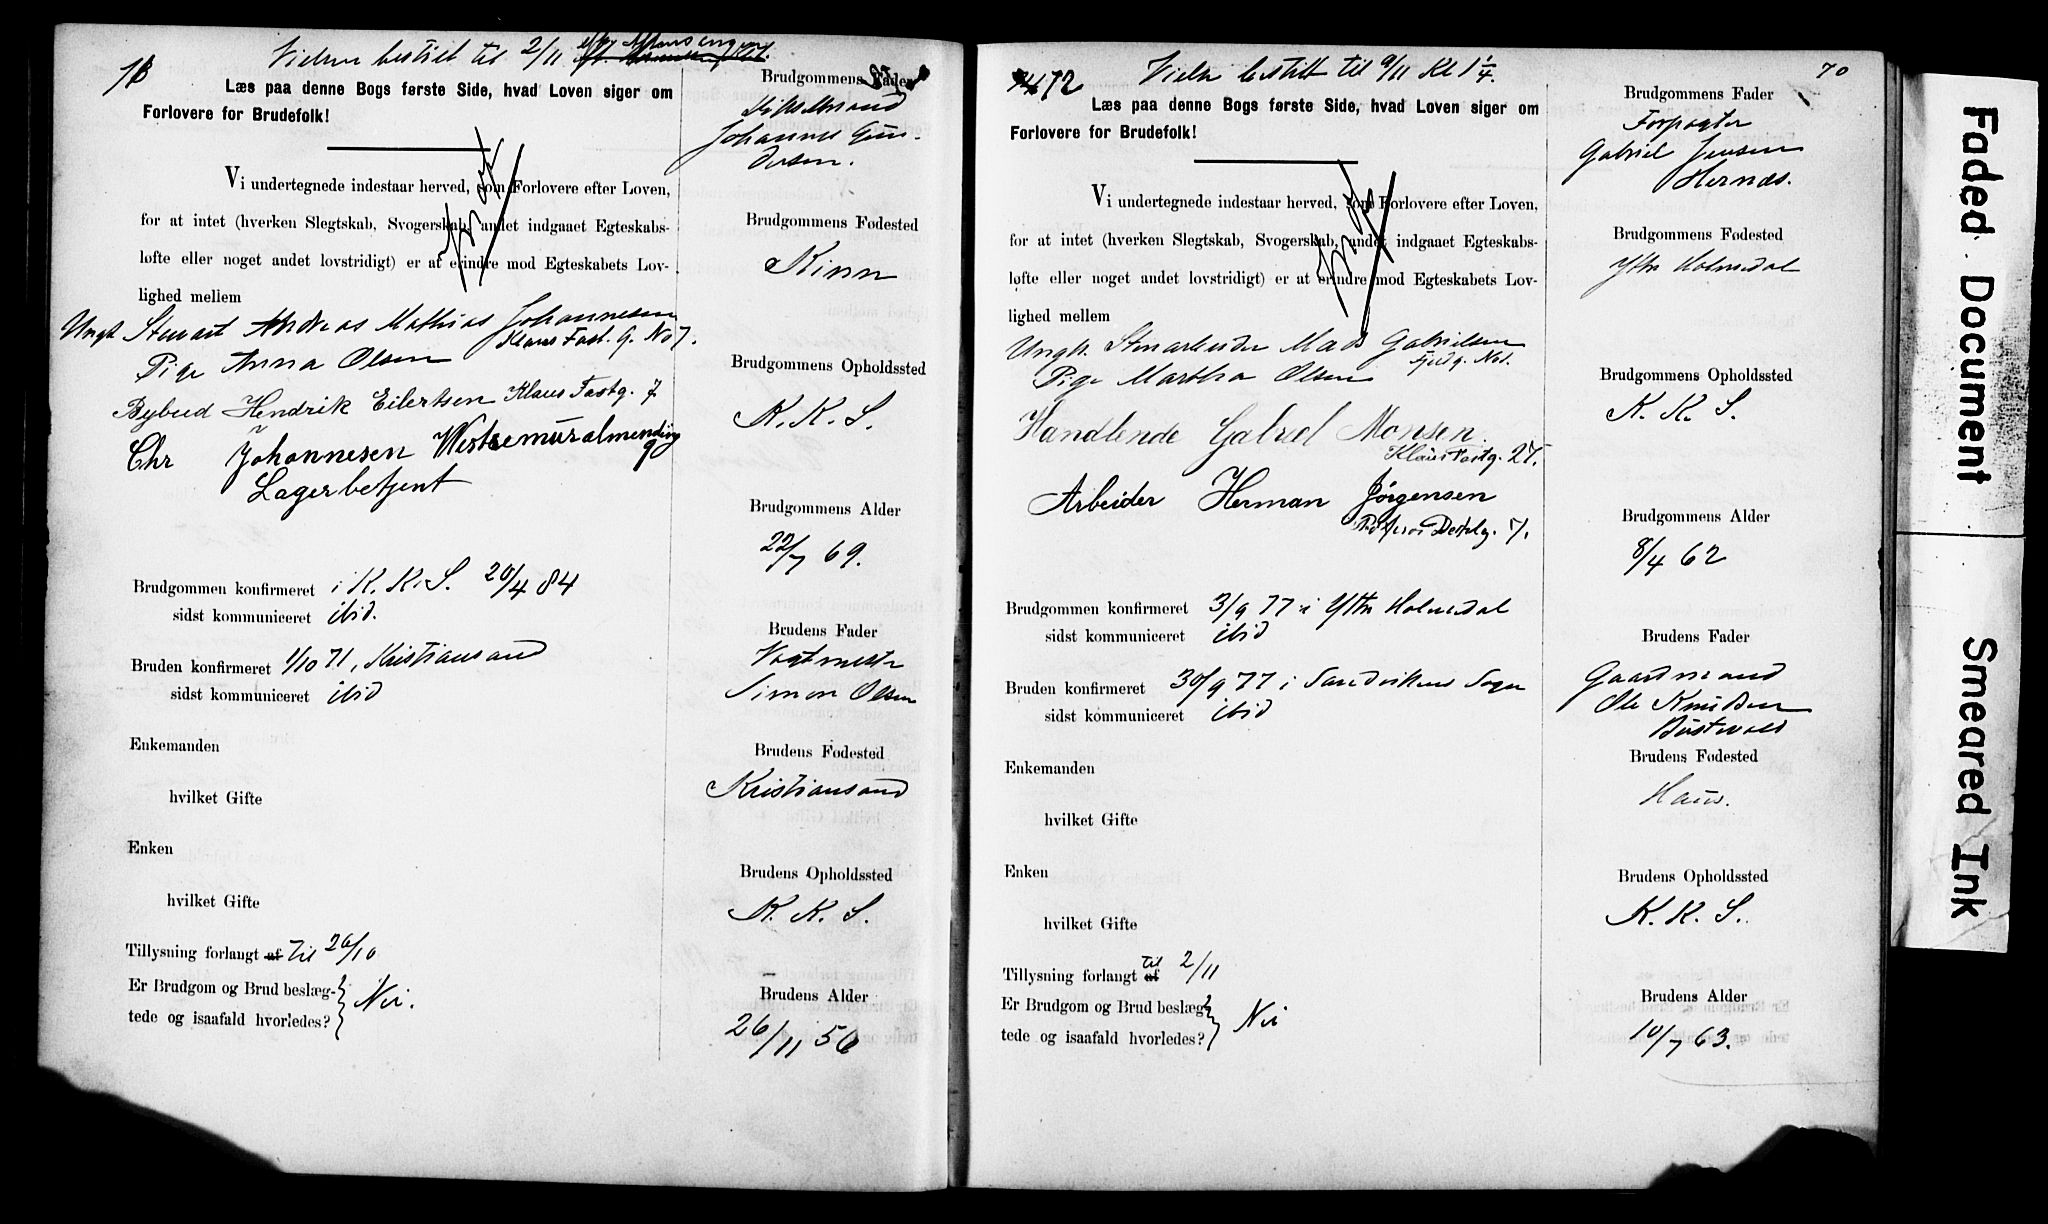 Vielsen bestilt til 2/11
Læs paa denne Bogs første Side, hvad Loven siger om
Forlovere for Brudefolk!
Vi undertegnede indestaar herved, som Forlovere efter Loven,
for at intet (hverken Slegtskab, Svogerskab, andet indgaaet Egteskabs-
løfte eller noget andet lovstridigt) er at erindre mod Egteskabets Lov-
lighed mellem
Ungk. Stuvart Andreas Mathias Johannesen
Klaus Fast. G. No 7.
Pige Anna Olsen
Bybud Hendrik Eilertsen Klaus Fastg. 7
Chr Johannesen Westremuralmending
9
Lagerbetjent
Brudgommen konfirmeret i K. K. S. 20/4 84
sidst kommuniceret ibid.
Bruden konfirmeret 1/10 71, Kristiansand
sidst kommuniceret ibid
Enkemanden
hvilket Gifte
Enken
hvilket Gifte
Tillysning forlangt af til 26/10
Er Brudgom og Brud beslæg-
tede og isaafald hvorledes? Nei.
Brudgommens Fader
Johannes Gun-
dersen.
Brudgommens Fødested
Kinn
Brudgommens Opholdssted
K. K. S.
Brudgommens Alder
22/7 69.
Brudens Fader
Vogtmester
Simon Olsen
Brudens Fødested
Kristiansand
Brudens Opholdssted
K. K. S.
Brudens Alder
26/11 56
72 Vielse bestilt til 9/11 Kl 1 1/4. 70
Læs paa denne Bogs første Side, hvad Loven siger om
Forlovere for Brudefolk!
Vi undertegnede indestaar herved, som Forlovere efter Loven,
for at intet (hverken Slegtskab, Svogerskab, andet indgaaet Egteskabs-
løfte eller noget andet lovstridigt) er at erindre mod Egteskabets Lov-
lighed mellem
Ungk. Stenarbeider Mads Gabrielsen
Pige Martha Olsen
Handlende Gabriel Monsen
Klaus Fastg. 27.
Arbeider Herman Jørgensen
Brudgommen konfirmeret 3/9 77 i Ytre Holmedal
sidst kommuniceret ibid
Bruden konfirmeret 30/9 77 i Sandvikens Sogn
sidst kommuniceret ibid
Enkemanden
hvilket Gifte
Enken
hvilket Gifte
Tillysning forlangt af til 2/11
Er Brudgom og Brud beslæg-
tede og isaafald hvorledes? Nei
Brudgommens Fader
Forpagter
Gabriel Jensen
Hernæs.
Brudgommens Fødested
Ytre Holmedal
Brudgommens Opholdssted
K. K. S.
Brudgommens Alder
8/4 62
Brudens Fader
Gaardmand
Ole Knudsen
Brudens Fødested
Haus.
Brudens Opholdssted
K. K. S.
Brudens Alder
10/7 63.
Faded Document
Smeared Ink